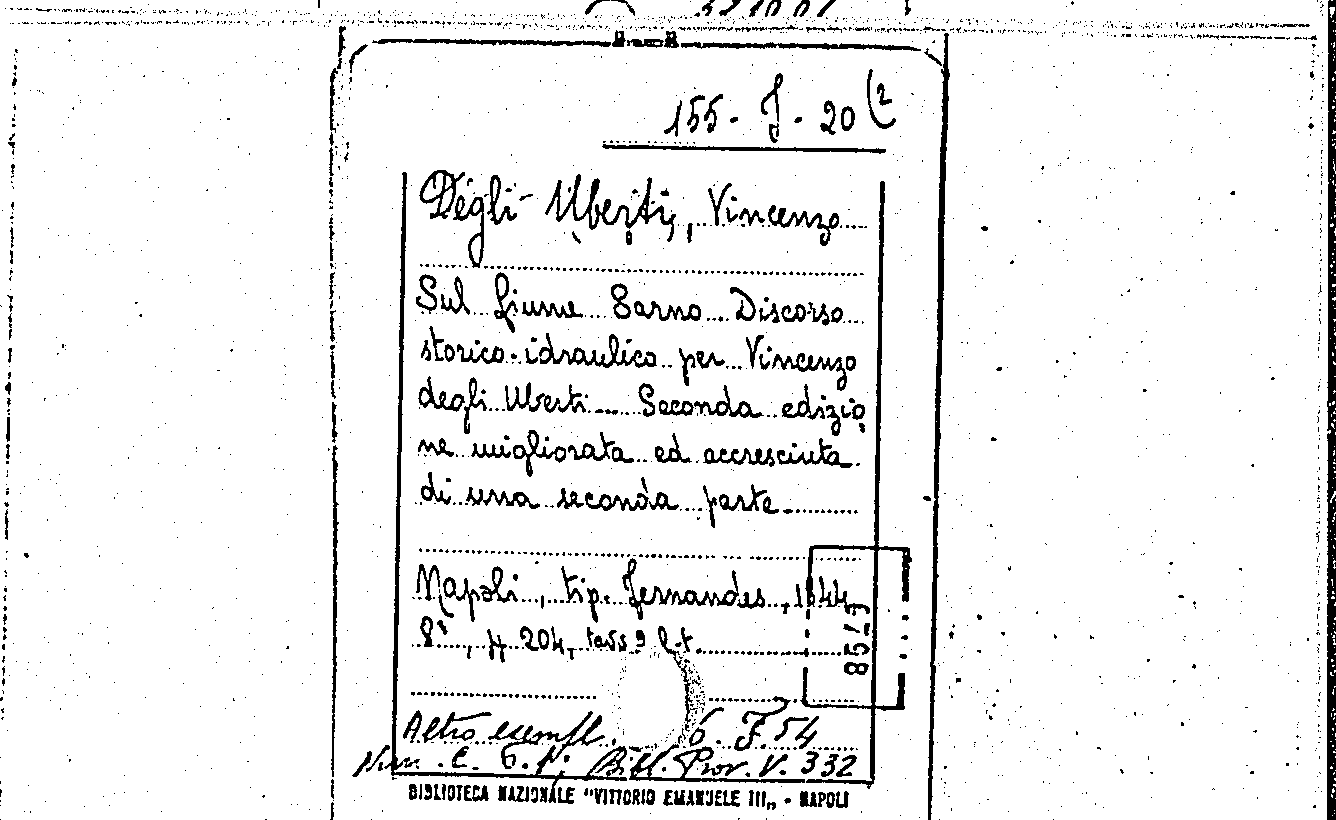 155 - J - 20 (2
Degli Uberti, Vincenzo
Sul fiume Sarno Discorso
storico-idraulico per Vincenzo
degli Uberti Seconda edizio
ne migliorata ed accresciuta
di una seconda parte
Napoli, tip. Fernandes, 1844
8°, pp 204, tavv 9 f.t.
8517
Altro esempl. 6. F. 54
Bibl. Prov. V. 332
BIBLIOTECA NAZIONALE "VITTORIO EMANUELE III„ - NAPOLI